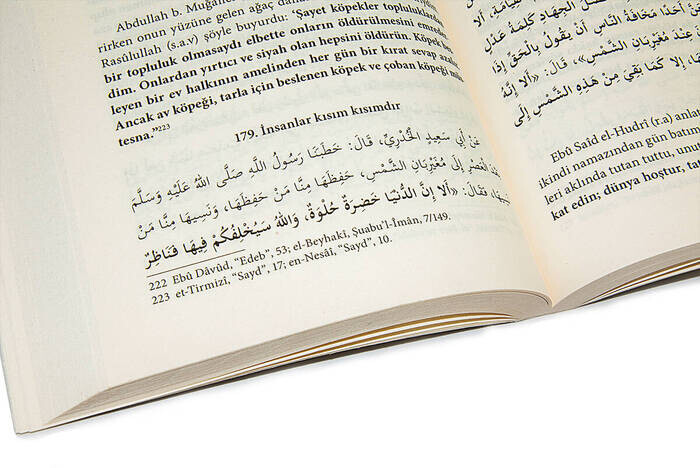 Abdullah b. Muğaffel
rirken onun yüzüne gelen ağaç da
Rasûlullah (s.a.v) şöyle buyurdu: "Şayet köpekler topluluklard
bir topluluk olmasaydı elbette onların öldürülmesini emrede
dim. Onlardan yırtıcı ve siyah olan hepsini öldürün. Köpek b
leyen bir ev halkının amelinden her gün bir kırat sevap aza
Ancak av köpeği, tarla için beslenen köpek ve çoban köpeği mü
tesna."223
179. İnsanlar kısım kısımdır
عَنْ أَبِي سَعِيدٍ الْخُدْرِيِّ، قَالَ: خَطَبَنَا رَسُولُ اللَّهِ صَلَّى اللَّهُ عَلَيْهِ وَسَلَّمَ
الْعَصْرِ إِلَى مُغَيْرِبَانِ الشَّمْسِ، حَفِظَهَا مِنَّا مَنْ حَفِظَهَا، وَنَسِيَهَا مِنَّا مَنْ
فَقَالَ: «أَلَا إِنَّ الدُّنْيَا خَضِرَةٌ حُلْوَةٌ، وَاللَّهُ سَيُخْلِفُكُمْ فِيهَا فَنَاظِرٌ
222 Ebû Dâvûd, "Edeb", 53; el-Beyhakî, Şuabu'l-Îmân, 7/149.
223 et-Tirmizî, "Sayd", 17; en-Nesâî, "Sayd", 10.
أَحَدًا مَخَافَةُ النَّاسِ أَنْ يَقُولَ بِالْحَقِّ إِذَا
الْجِهَادِ كَلِمَةُ عَدْلٍ
عِنْدَ مُغَيْرِبَانِ الشَّمْسِ»، قَالَ: «أَلَا إِنَّهُ
إِلَّا كَمَا بَقِيَ مِنْ هَذِهِ الشَّمْسِ إِلَى
Ebû Saîd el-Hudrî (r.a) anlat
ikindi namazından gün batım
leri aklında tutan tuttu, unu
kat edin; dünya hoştur, ta